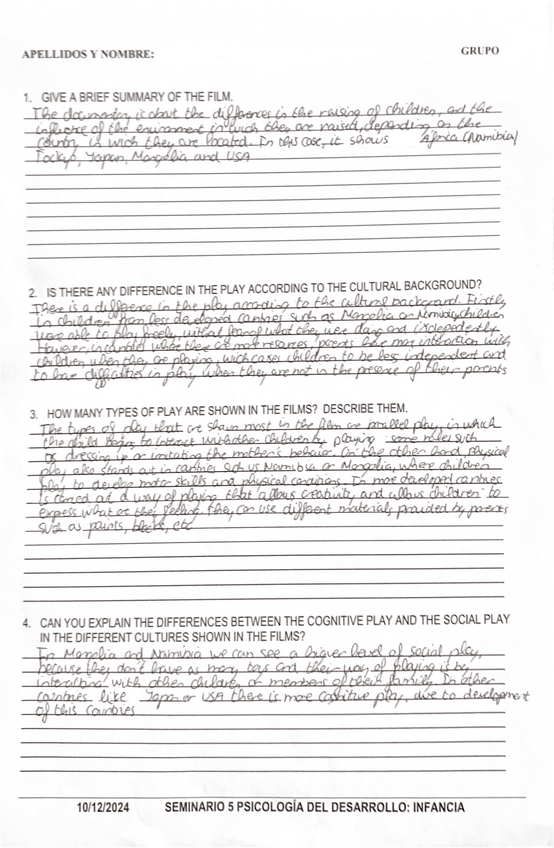 APELLIDOS Y NOMBRE: GRUPO
1. GIVE A BRIEF SUMMARY OF THE FILM.
The documentary is about the differences in the raising of children, and the
influence of the enviroment in wich they are raised, depending on the
country in wich they are located. In this case, it shows Africa (Namibia)
Tockyo, Japan, Mongolia and USA
2. IS THERE ANY DIFFERENCE IN THE PLAY ACCORDING TO THE CULTURAL BACKGROUND?
There is a difference in the play according to the cultural background. Firstly
in children from less developed countries such as Mongolia or Namibia, children
were able to play freely, without fear of what they were doing and independently.
However, in countries where there are more resources, parents have more interaction with
children when they are playing, wich causes children to be less independent and
to have difficulties in play, when they are not in the presence of their parents
3. HOW MANY TYPES OF PLAY ARE SHOWN IN THE FILMS? DESCRIBE THEM.
The types of play that are shown most in the film are parallel play, in which
the child begins to interact with other children by playing some roles such
as dressing up or imitating the mother's behavior. On the other hand, physical
play also stands out in countries such us Namibia or Mongolia, where children
play to develop motor skills and physical conditions. In more developed countries
is carried out a way of playing that allows creativity, and allows children to
express what are they feeling. They can use different materials provided by parents
such as paints, blocks, etc
4. CAN YOU EXPLAIN THE DIFFERENCES BETWEEN THE COGNITIVE PLAY AND THE SOCIAL PLAY
IN THE DIFFERENT CULTURES SHOWN IN THE FILMS?
In Mongolia and Namibia we can see a higher level of social play,
because they don't have as many toys and their way of playing it by
interacting with other children or members of their family. In other
countries like Japan or USA there is more cognitive play, due to development
of this countries
10/12/2024 SEMINARIO 5 PSICOLOGÍA DEL DESARROLLO: INFANCIA